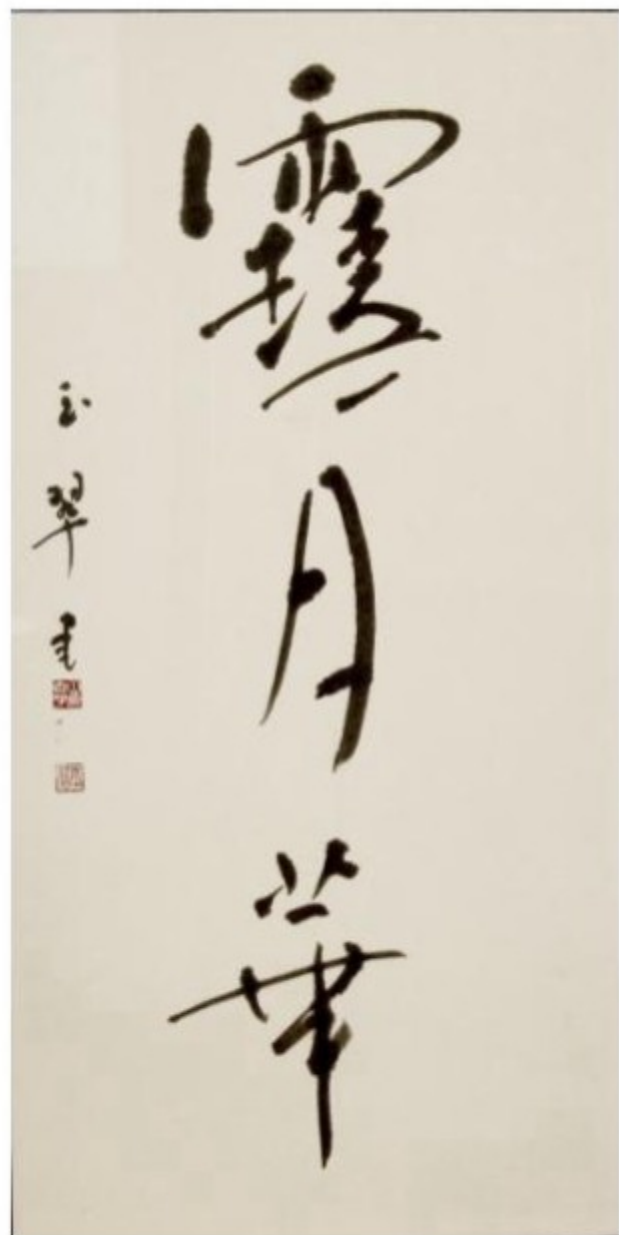 雪月華
玉翠書